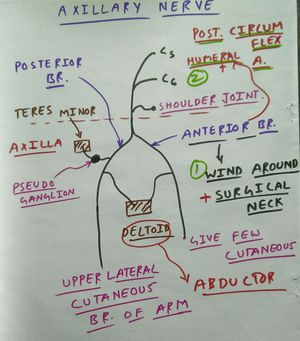 AXILLARY NERVE
POST. CIRCUM
FLEX
HUMERAL A.
C5
C6
2
POSTERIOR
BR.
SHOULDER JOINT
TERES MINOR
AXILLA
ANTERIOR BR.
PSEUDO
GANGLION
1 WIND AROUND
+ SURGICAL
NECK
DELTOID
GIVE FEW
CUTANEOUS
UPPER LATERAL
CUTANEOUS
BR. OF ARM
ABDUCTOR